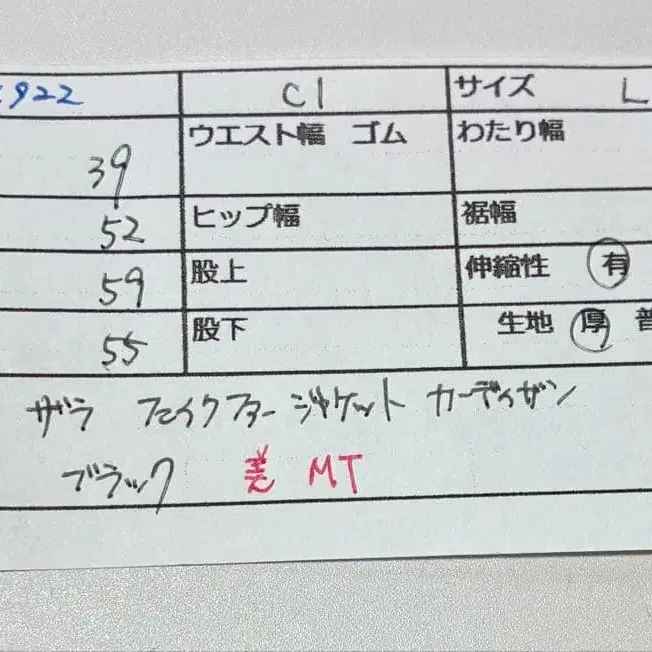 922 C1 サイズ L
39 ウエスト幅 ゴム わたり幅
52 ヒップ幅 裾幅
59 股上 伸縮性 有
55 股下 生地 厚 普
ザラ フェイクファー ジャケット カーディガン
ブラック 美 MT